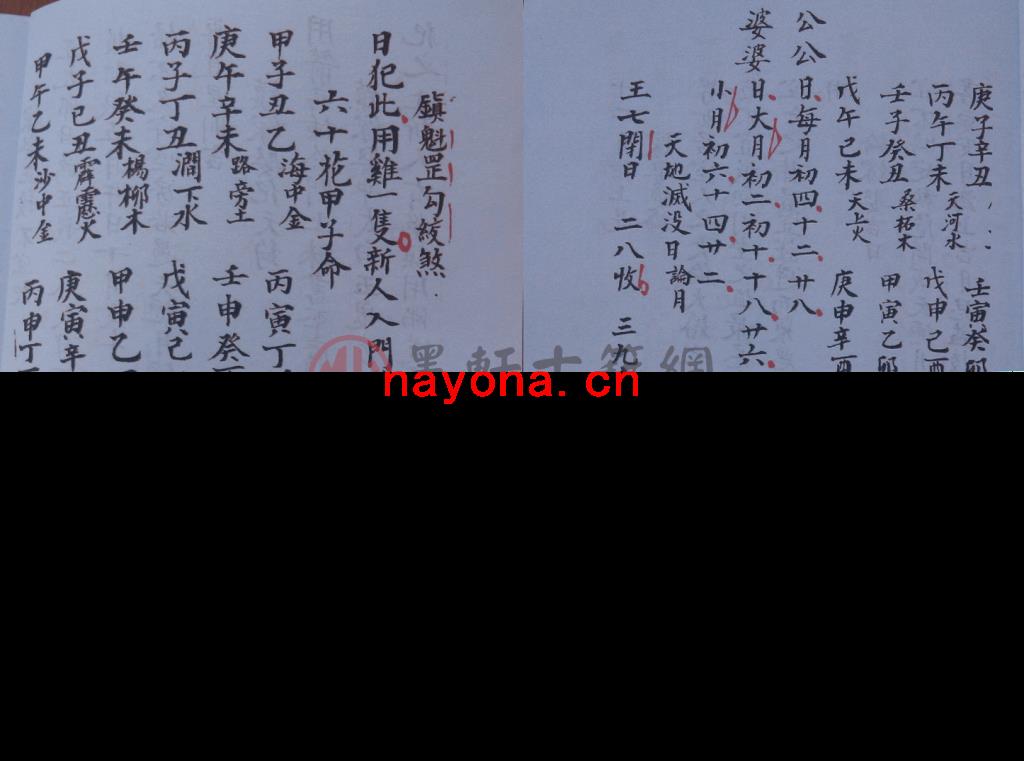 鎮魁罡勾絞煞
日犯此用雞一隻新人入門
六十花甲子命
甲子丑乙海中金 丙寅丁
庚午辛未路旁土 壬申癸
丙子丁丑澗下水 戊寅己
壬午癸未楊柳木 甲申乙
戊子己丑霹靂火 庚寅辛
甲午乙未沙中金 丙申丁
庚子辛丑 壬寅癸卯
丙午丁未天河水 戊申己酉
壬子癸丑桑柘木 甲寅乙卯
戊午己未天上火 庚申辛酉
公公日每月初四十二廿八
婆婆日大月初二初十十八廿六
小月初六十四廿二
天地滅没日論月
王七閉日 二八收 三九
墨軒古籍網
hayona.cn